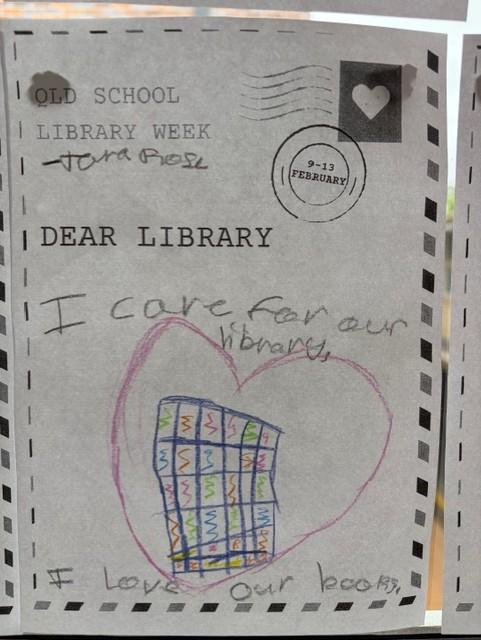 OLD SCHOOL
LIBRARY WEEK
-Tara Rose
9-13
FEBRUARY
DEAR LIBRARY
I care for our
library,
I Love Our books,